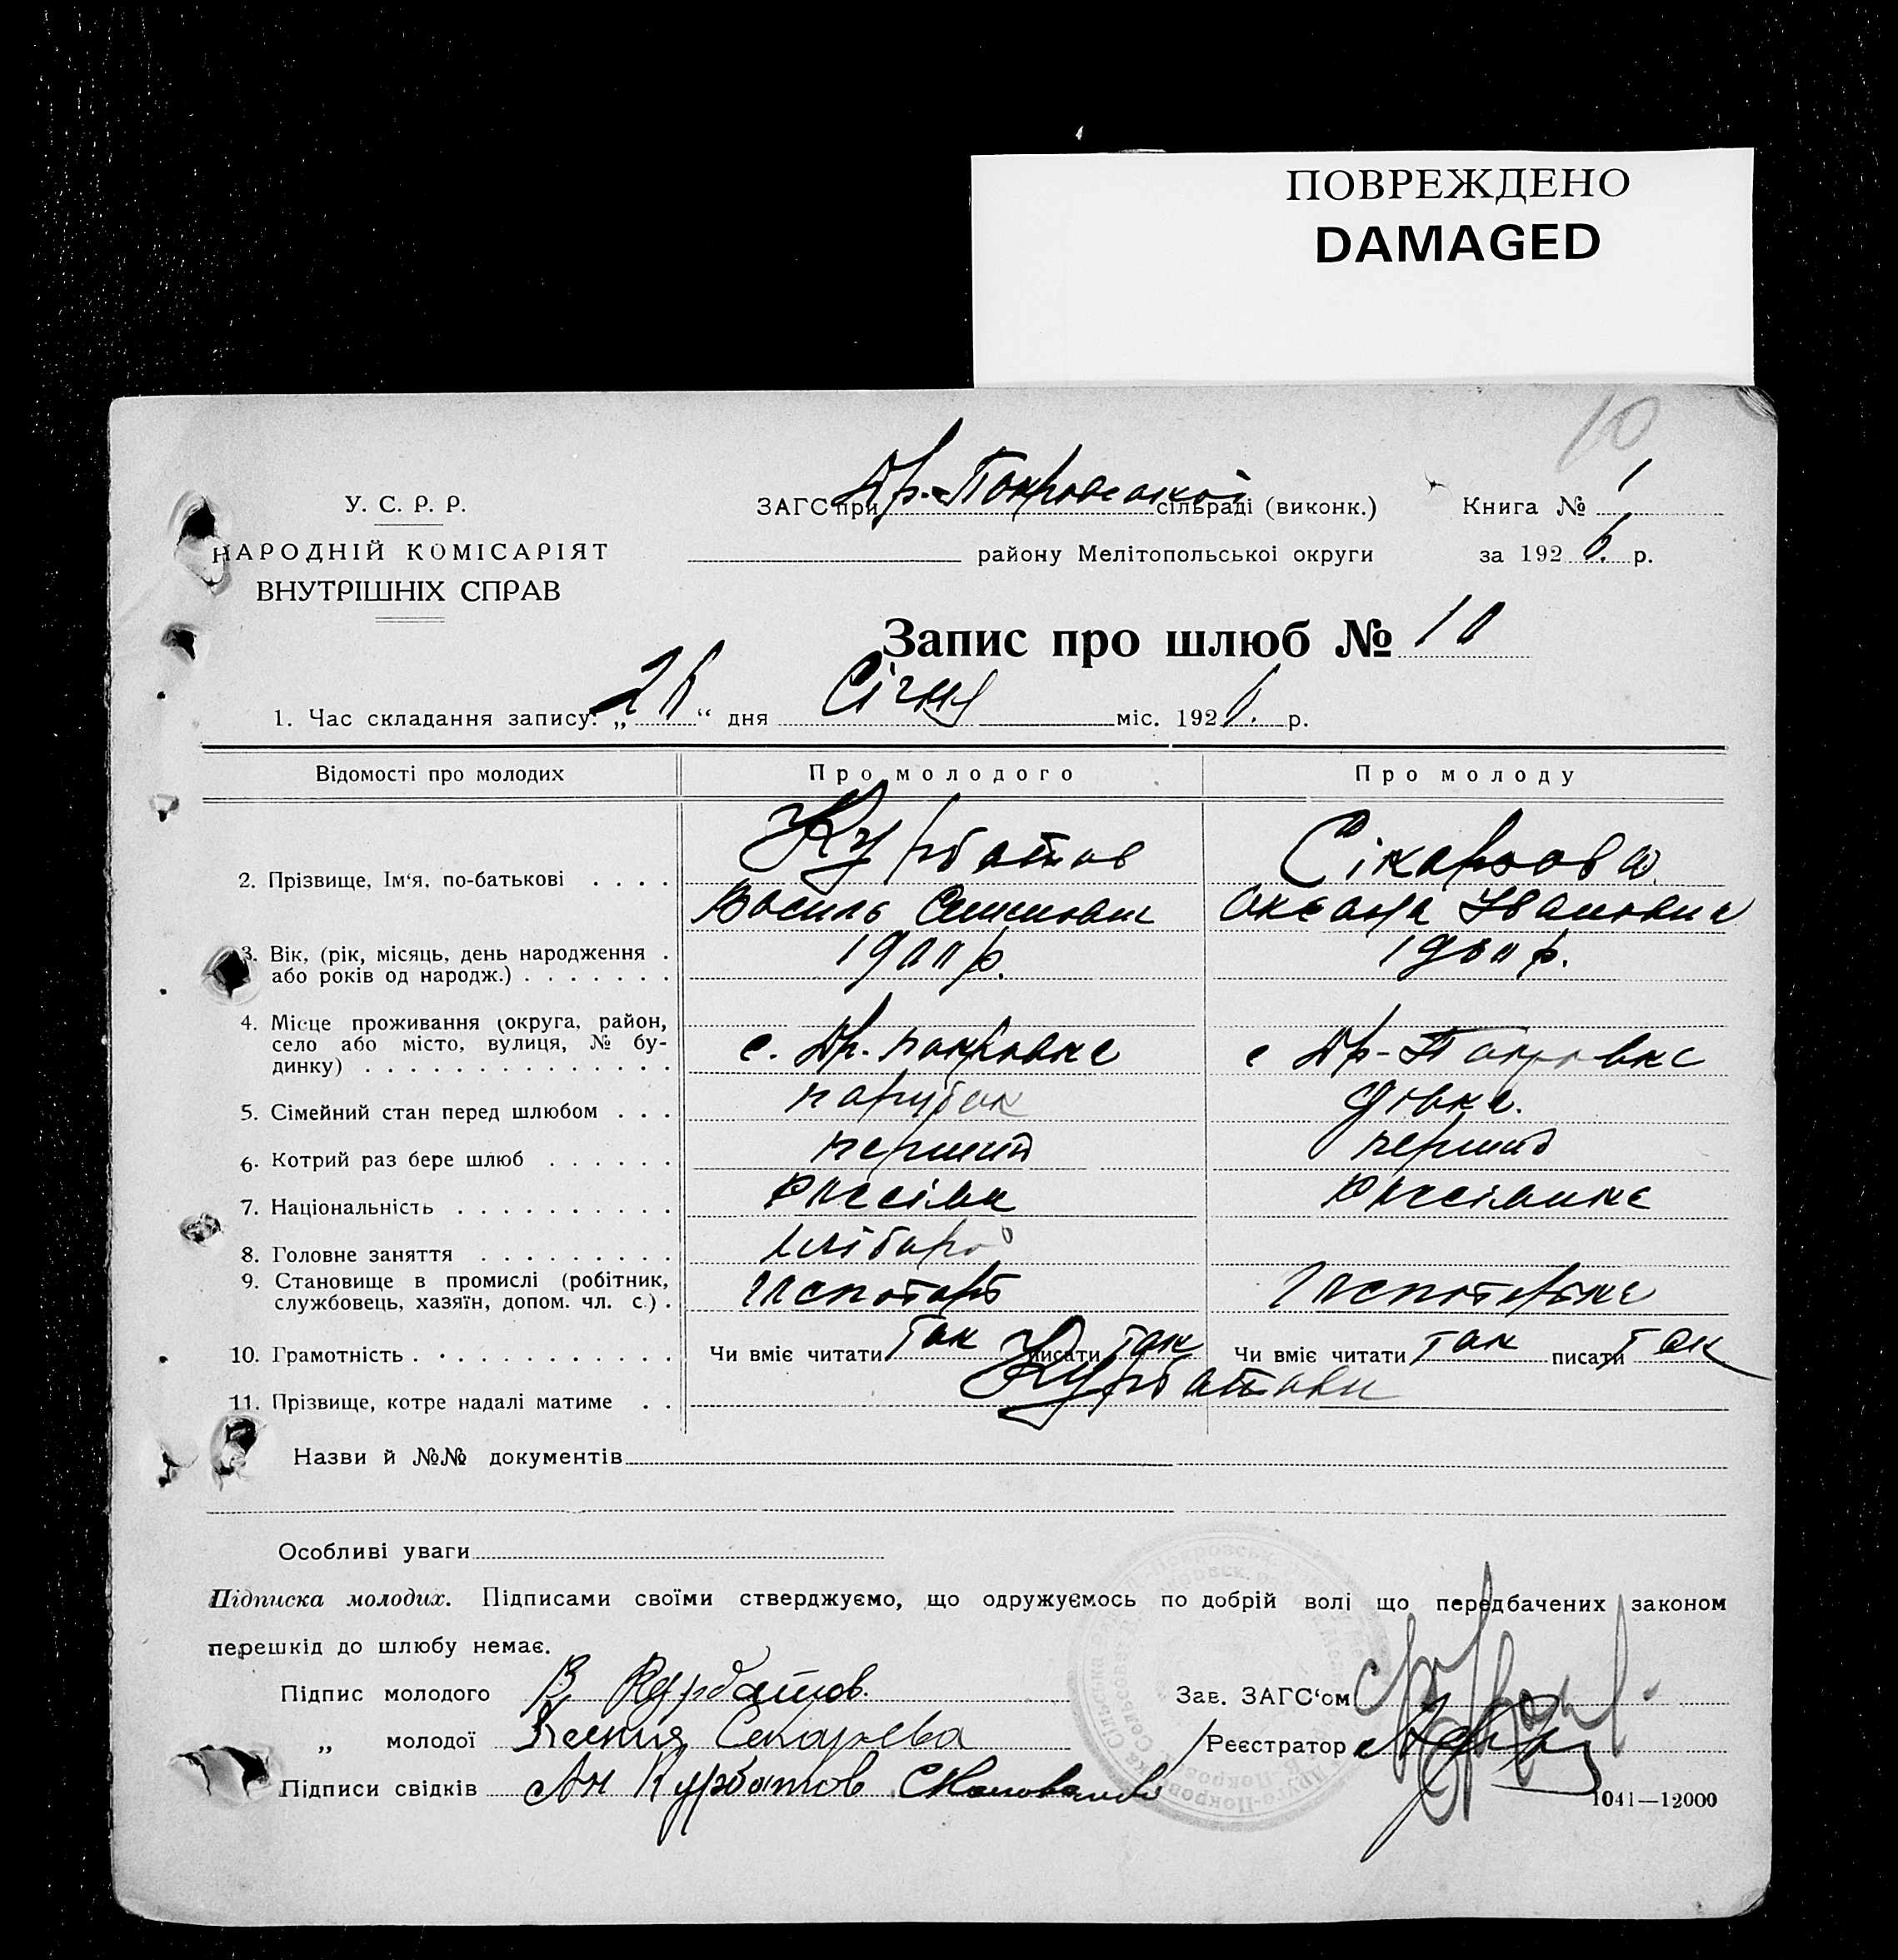 ПОВРЕЖДЕНО
DAMAGED
10
У. С. Р. Р.
НАРОДНІЙ КОМІСАРІЯТ
ВНУТРІШНІХ СПРАВ
ЗАГС при Др.-Покровської сільраді (виконк.)
району Мелітопольської округи
Книга № 1
за 1926 р.
Запис про шлюб № 10
1. Час складання запису: „26“ дня Січня міс. 1926. р.
Відомості про молодих Про молодого Про молоду
2. Прізвище, Ім‘я, по-батькові . . . . Курбатов
Василь
Оксана Івановна
3. Вік, (рік, місяць, день народження . 1900 р. 1900 р.
або років од народж.) . . . . . . .
4. Місце проживання (округа, район,
село або місто, вулиця, № бу- с. Др. Покровка с Др-Покровка
динку) . . . . . . . . . . . . . .
5. Сімейний стан перед шлюбом . . . парубок дівка.
6. Котрий раз бере шлюб . . . . . . перший перший
7. Національність . . . . . . . . . .
8. Головне заняття . . . . . . . . . хлібороб
9. Становище в промислі (робітник,
службовець, хазяїн, допом. чл. с.) .
10. Грамотність . . . . . . . . . . . . Чи вміє читати так писати так Чи вміє читати так писати так
11. Прізвище, котре надалі матиме . . Курбатови
Назви й №№ документів
Особливі уваги
Підписка молодих. Підписами своїми стверджуємо, що одружуємось по добрій волі що передбачених законом
перешкід до шлюбу немає.
Підпис молодого В Курбатов.
„ молодої Ксения
Підписи свідків Ан Курбатов
Зав. ЗАГС‘ом
Реєстратор
1041—12000